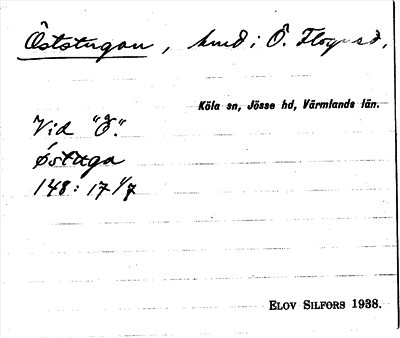 Öststugan, hmd i Ö. Flogned,
Köla sn, Jösse hd, Värmlands län.
Vid "Ö."
östuga
148: 17 1/7
ELOV SILFORS 1938.